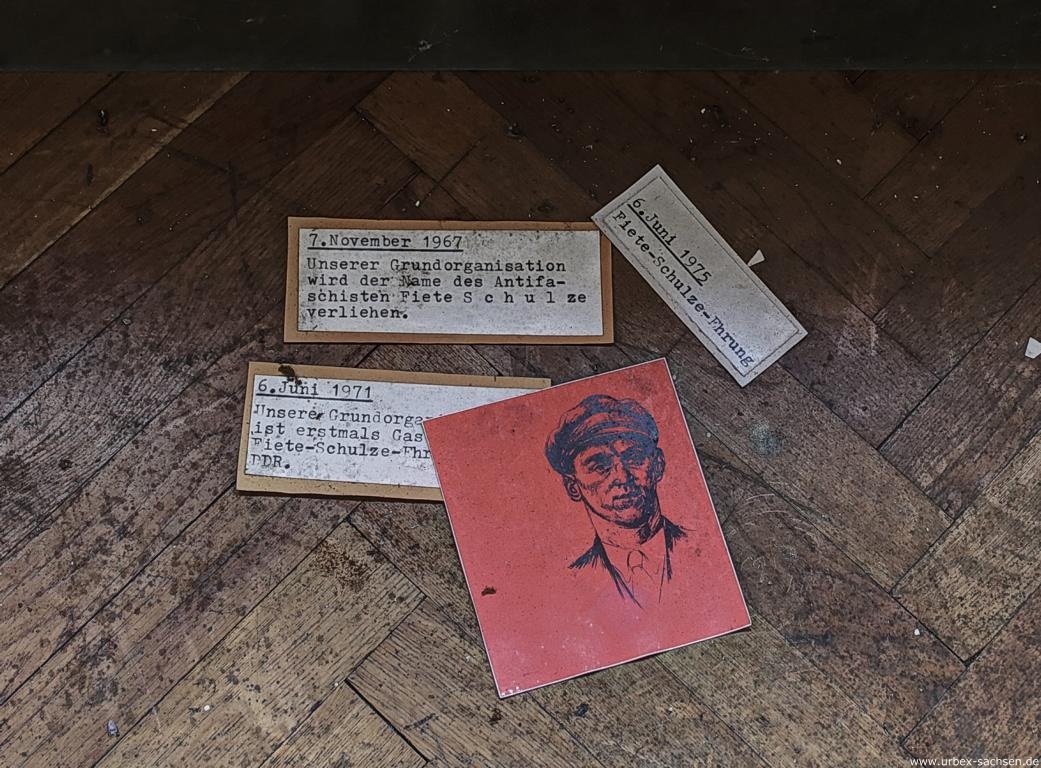 7.November 1967
Unserer Grundorganisation
wird der Name des Antifa-
schisten Fiete S c h u l ze
verliehen.
6.Juni 1975
Fiete-Schulze-Ehrung
6.Juni 1971
Unsere Grundorga
ist erstmals Gas
Fiete-Schulze-Ehr
DDR.
www.urbex-sachsen.de